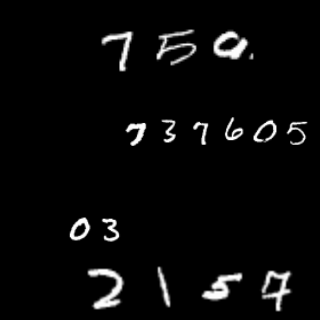 750
737605
03
2157